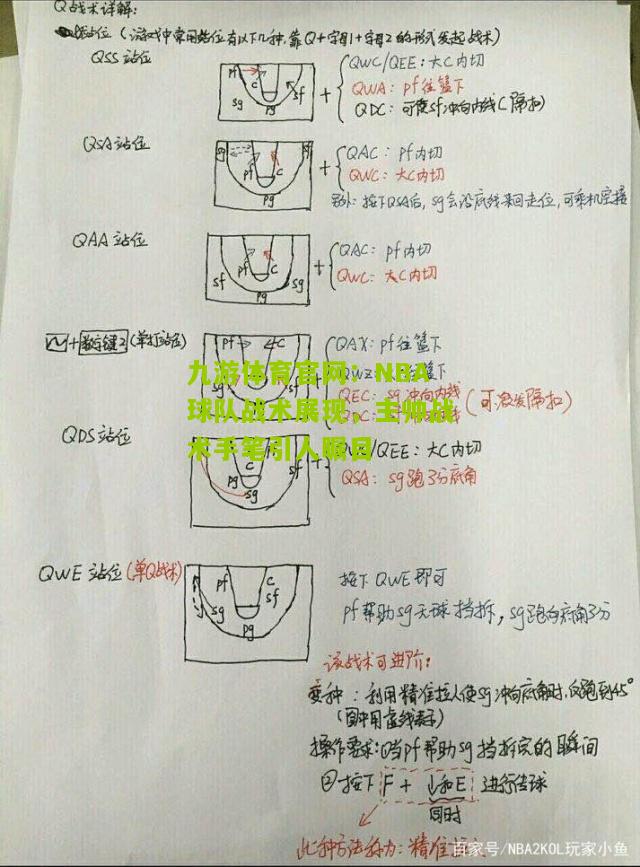 Q战术详解:
站位 (游戏中常用站位有以下几种,靠Q+字母1+字母2的形式发起战术)
QSS站位
pf C sf sg pg
+
QWC/QEE: 大C内切
QWA: pf往篮下
QDC: 可使sf冲向内线(隔扣)
QSA站位
sg pf C pg
+
QAC: pf内切
QWC: 大C内切
另外: 按下QSA后, sg会沿底线来回走位, 可乘机空接
QAA站位
pf C sf sg pg
+
QAC: pf内切
QWC: 大C内切
+数字键2 (单打站位)
pf C
sf sg
QAX: pf往篮下
QWZ 篮下
QEC: sg冲向内线
(可激发隔扣)
九游体育官网:NBA
球队战术展现,主帅战
术手笔引人瞩目
QDS站位
C sf pg sg
+
/QEE: 大C内切
QSA: sg跑3分底角
QWE站位(单Q战术)
pf C sg sf pg
按下QWE即可
pf帮助sg无球挡拆, sg跑向底角3分
该战术可进阶:
变种: 利用精准拉人使sg冲向底角时,仅跑到45°
(图中用虚线表示)
操作要求:①当pf帮助sg挡拆完的瞬间
②按下 F + ↓和E 进行传球
同时
此种方法称为: 精准
百家号/NBA2KOL玩家小鱼